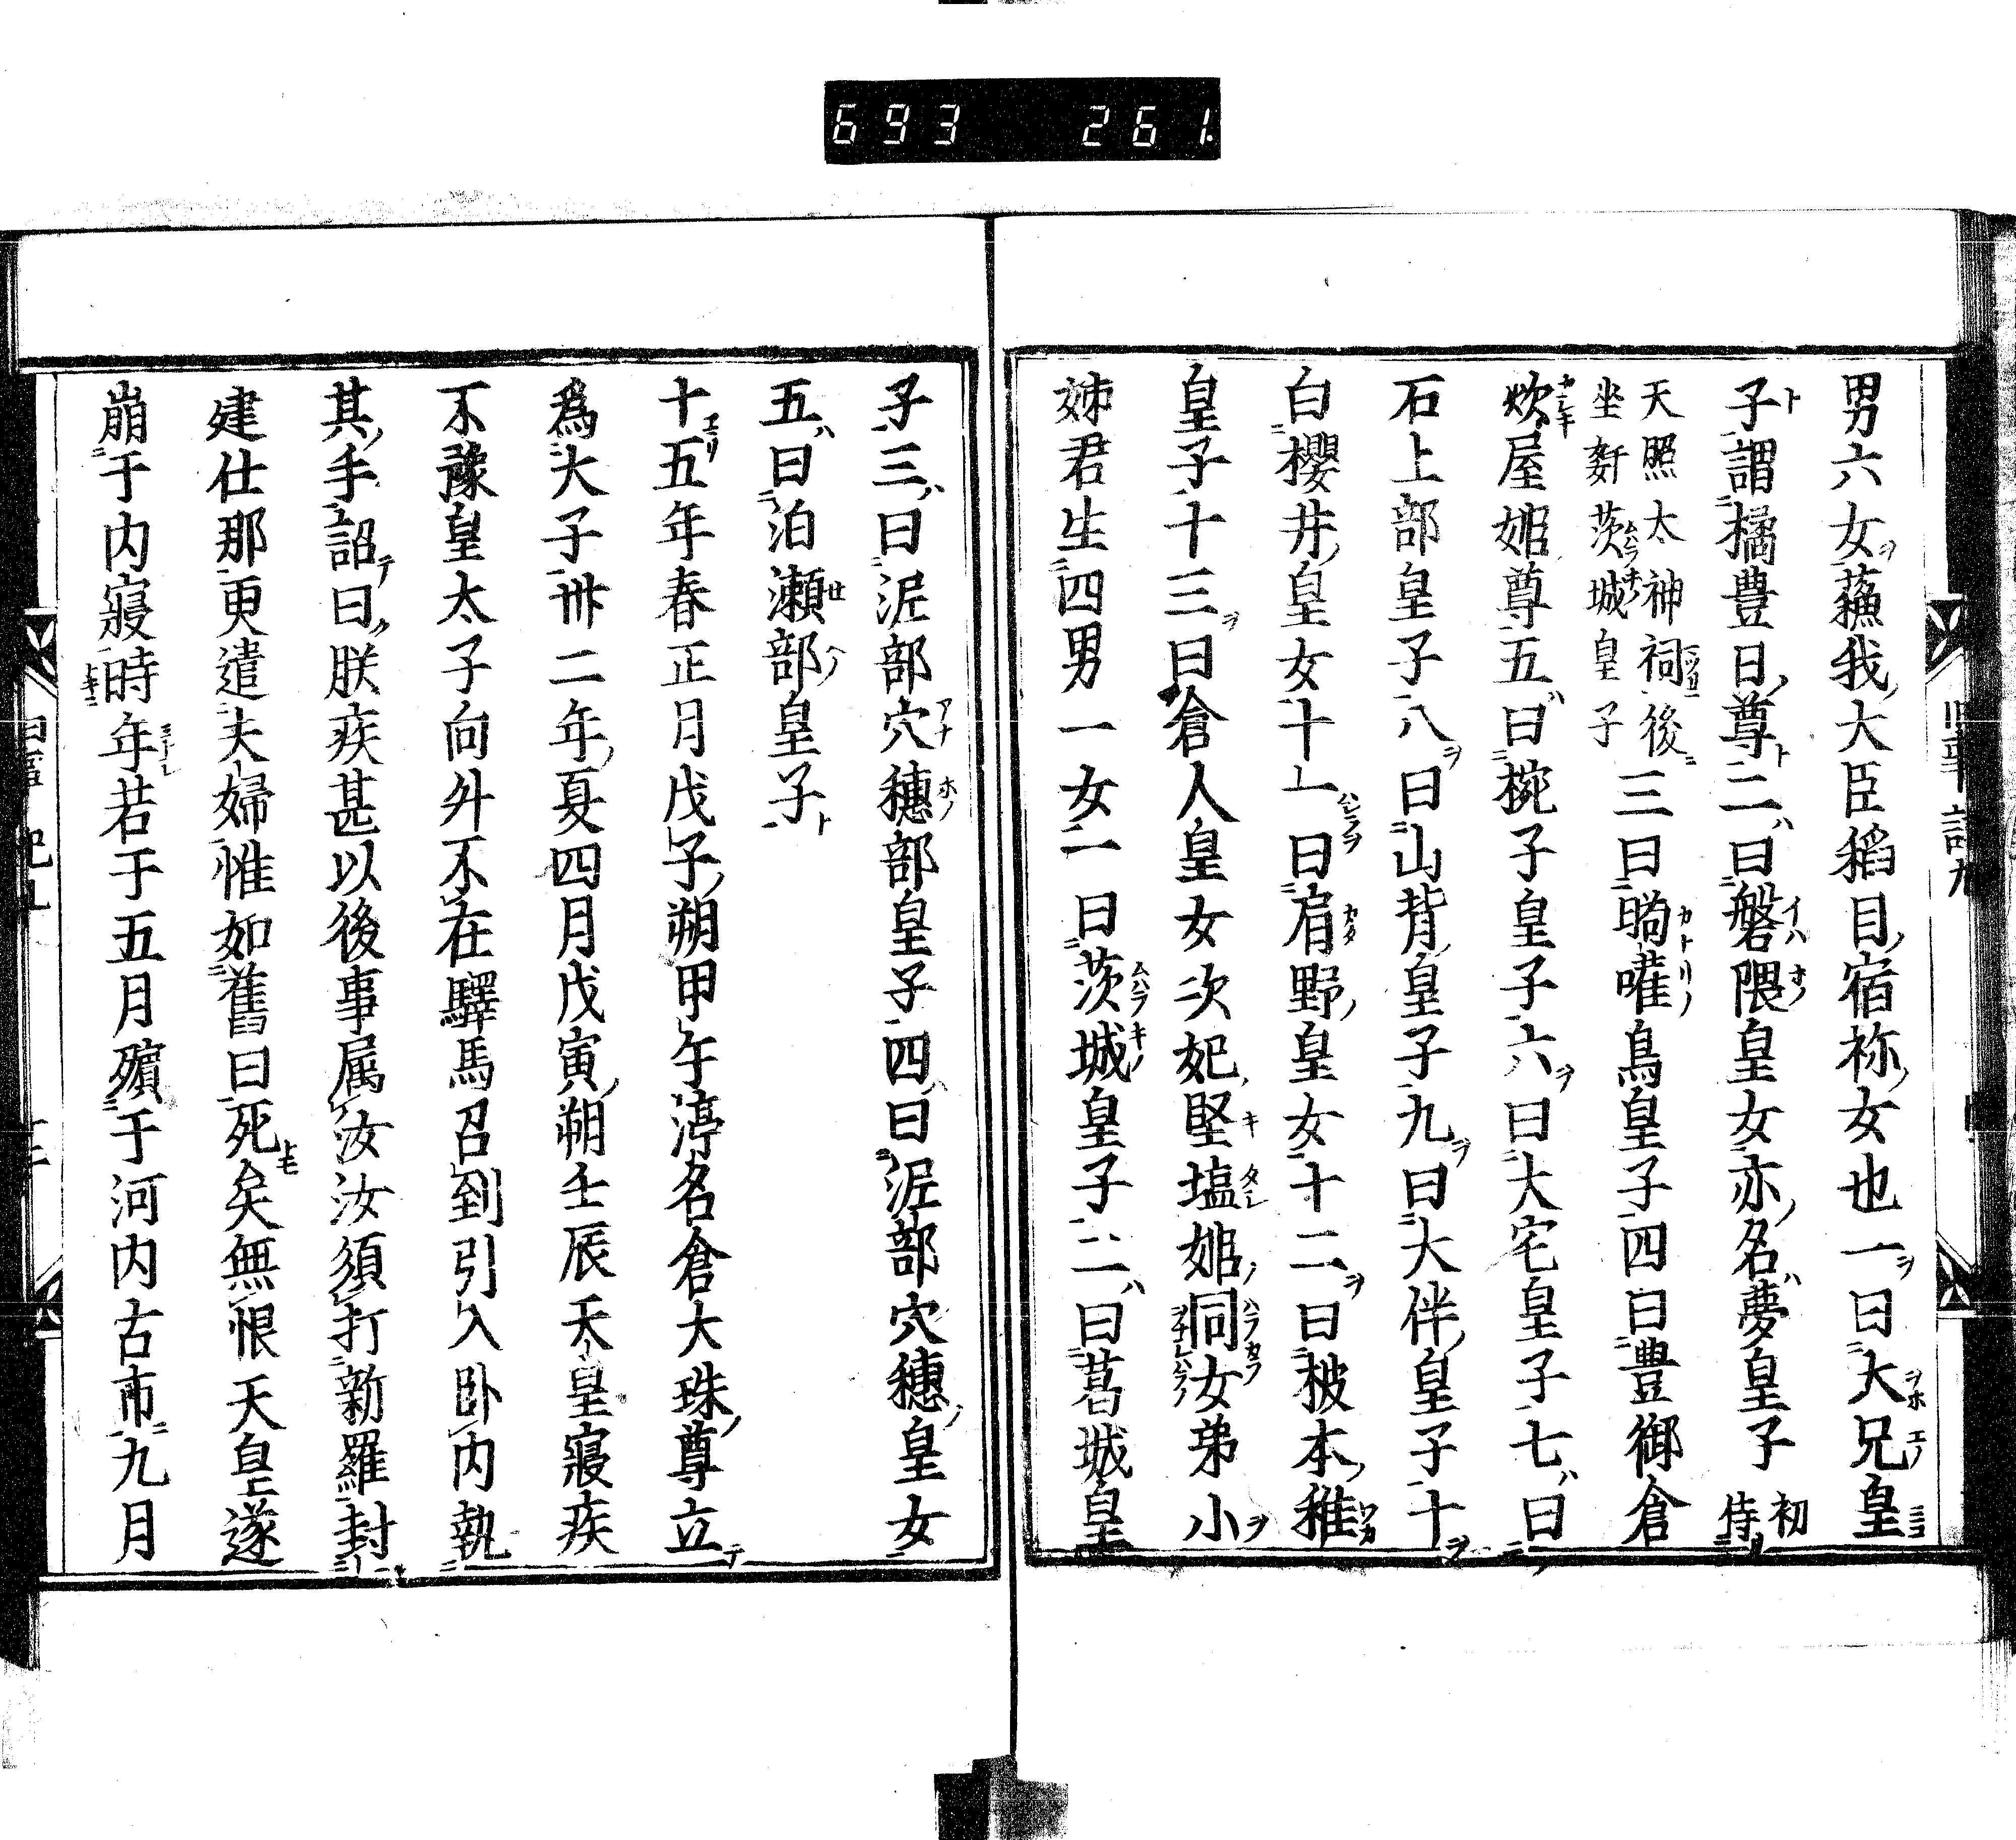 693 261
男六女蘓我大臣稻目宿祢女也一曰大兄皇
子謂橘豊日尊二曰磐隈皇女亦名夢皇子初侍
天照太神祠後
坐姧茨城皇子
三曰𦝠嘴鳥皇子四曰豊御倉
炊屋姫尊五曰椀子皇子六曰大宅皇子七曰
石上部皇子八曰山背皇子九曰大伴皇子十
曰櫻井皇女十一曰肩野皇女十二曰披本稚
皇子十三曰倉人皇女次妃堅塩姫同女弟小
姊君生四男一女一曰茨城皇子二曰葛城皇
子三曰泥部穴穗部皇子四曰泥部穴穗皇女
五曰泊瀬部皇子
十五年春正月戊子朔甲午渟名倉大珠尊立
爲大子卅二年夏四月戊寅朔壬辰天皇寢疾
不豫皇太子向外不在驛馬召到引入卧内執
其手詔曰朕疾甚以後事属汝汝須打新羅封
建仕那更遣夫婦惟如舊曰死矣無恨天皇遂
崩于内寢時年若于五月殯于河内古市九月